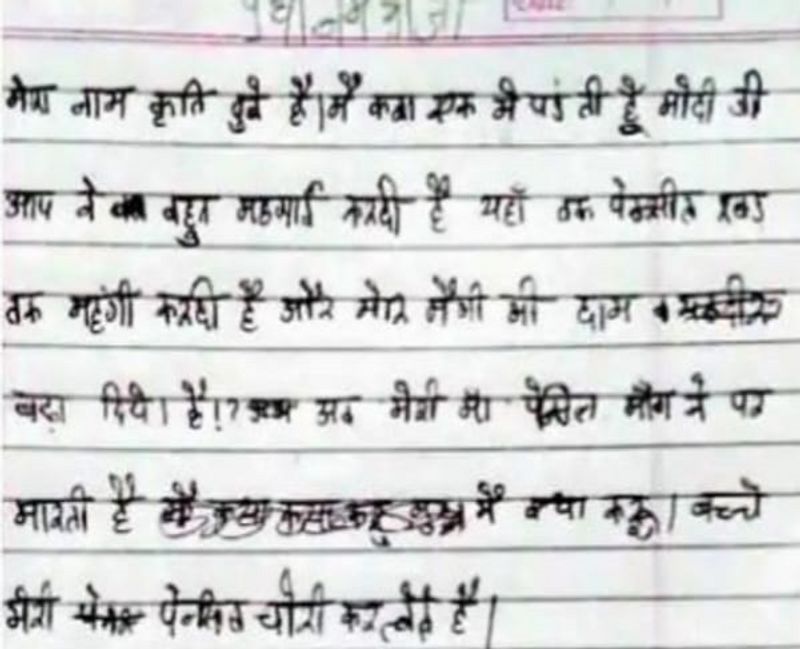 प्रधानमंत्री जी
मेरा नाम कृति दुबे है। मैं कक्षा एक मे पड़ती हूँ मोदी जी
आप ने बहुत महगाई करदी है यहाँ तक पेन्सील रबड
तक महंगी करदी है और मेरि मैगी भी दाम
बढ़ा दिये। है!? अब मेरी माँ पेंसिल माँग ने पर
मारती है मै क्या करू। बच्चे
मेरी पेनसिल चोरी कर लेते है।